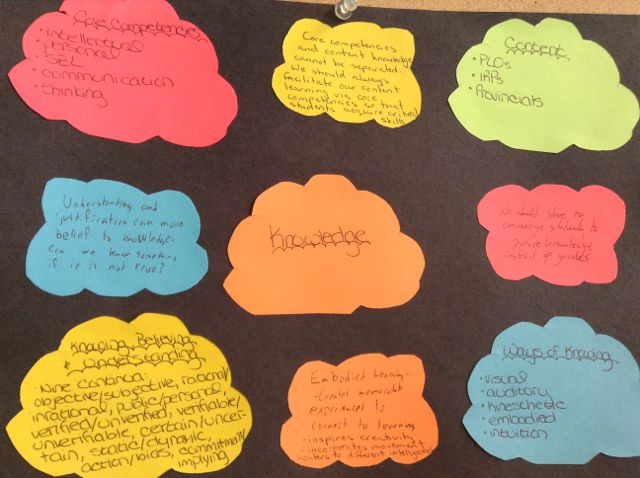 Core Competencies
•intellectual
•personal
•SEL
•communication
•thinking
Core competencies
and content knowledge
cannot be separated.
We should always
facilitate our content
learning via core
competencies so that
students acquire critical
skills
Content
•PLOs
•IRPs
•Provincials
Understanding and
justification can move
belief to knowledge-
Can we know something
if it is not true?
Knowledge
We should strive to
encourage students to
pursue knowledge
instead of grades
Knowing, Believing
+ Understanding
•Nine Continua:
objective/subjective, rational/
irrational, public/personal,
verified/unverified, verifiable/
unverifiable, certain/uncer-
tain, static/dynamic,
action/bias, committmently
implying
Embodied Learning-
-Creates memorable
experiences to
connect to learning
•inspires creativity
•incorporates movement
•caters to different intelligences
Ways of Knowing
•visual
•auditory
•kinesthetic
•embodied
•intuition